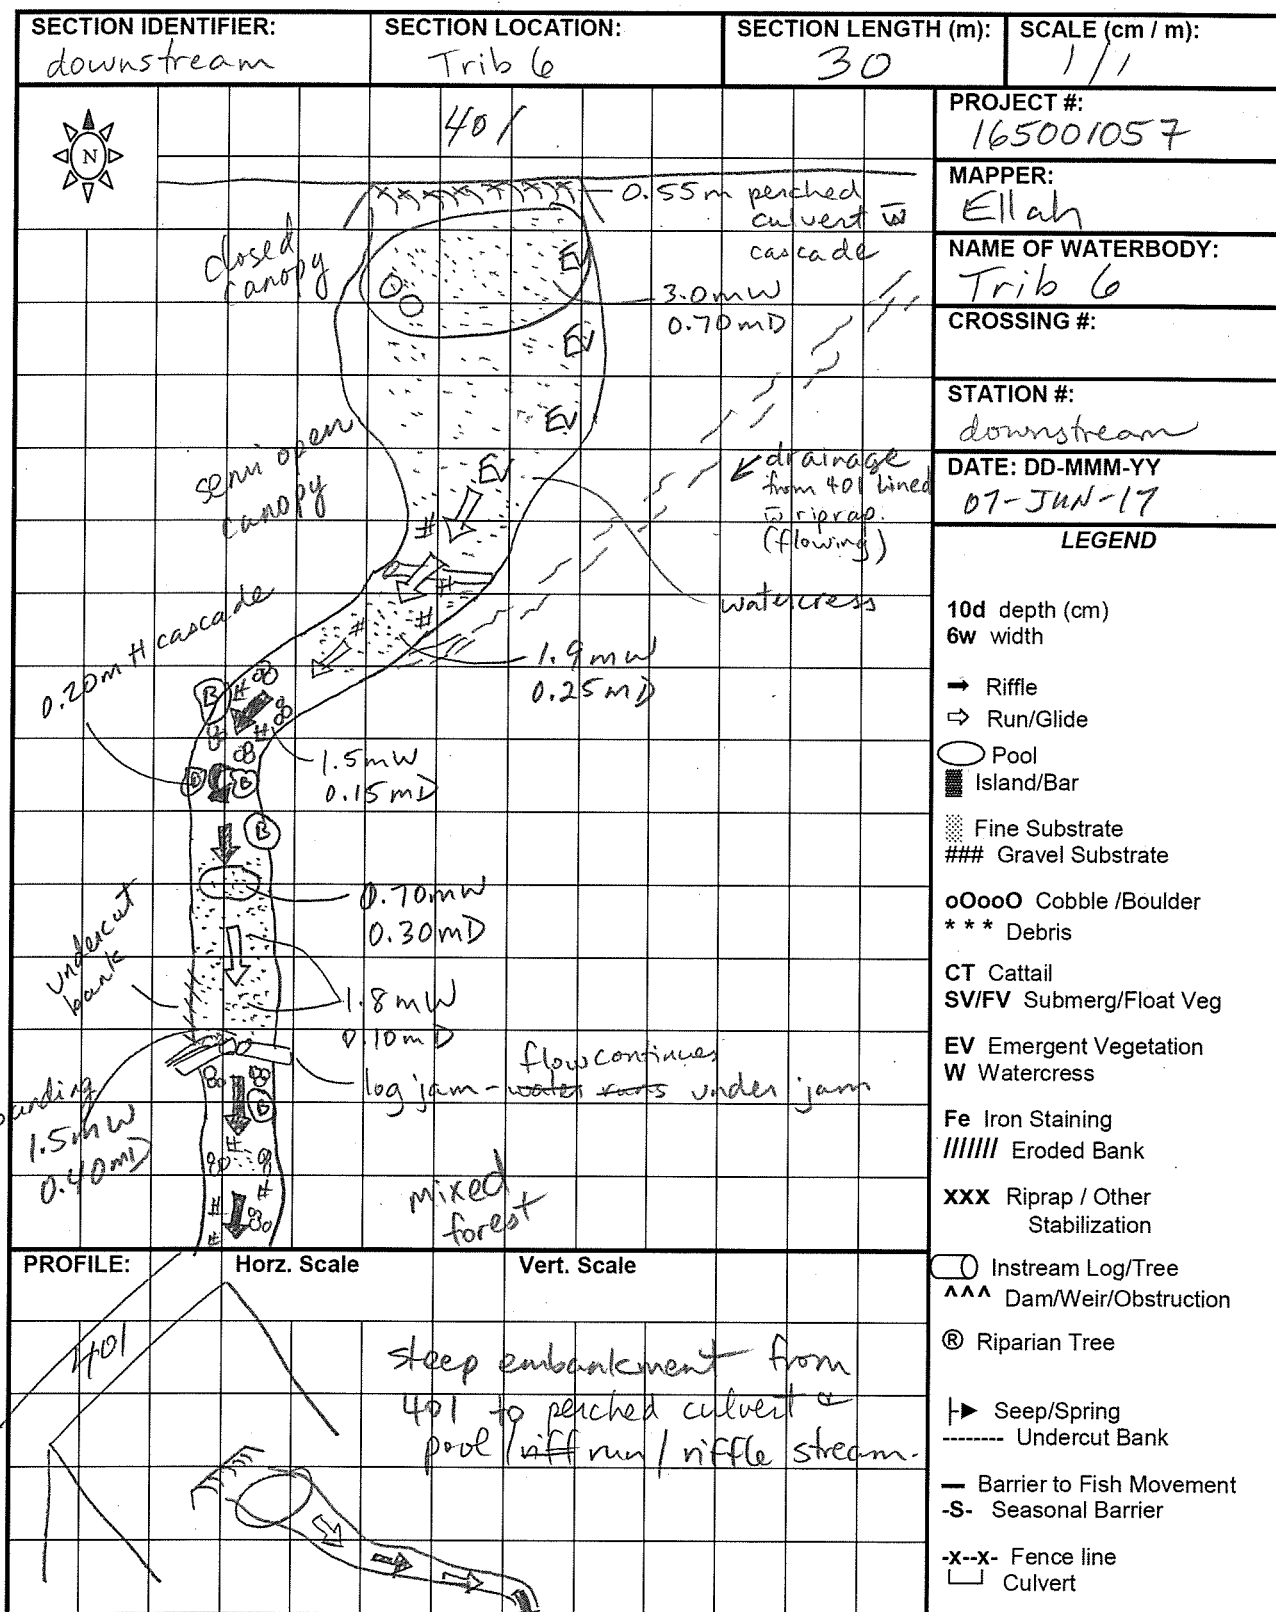 SECTION IDENTIFIER:
downstream
SECTION LOCATION:
Trib 6
SECTION LENGTH (m):
30
SCALE (cm / m):
1/1
N
401
0.55m perched
culvert w̅
cascade
closed
canopy
EV
3.0mW
0.70mD
EV
EV
semi open
canopy
EV
drainage
from 401 lined
w̅ riprap.
(flowing)
watercress
0.20m H cascade
1.9mW
0.25mD
B
1.5mW
0.15mD
B
B
B
0.70mW
0.30mD
undercut
bank
1.8mW
0.10mD
flow continues
log jam - water runs under jam
B
1.5mW
0.40mD
mixed
forest
PROJECT #:
165001057
MAPPER:
Ellah
NAME OF WATERBODY:
Trib 6
CROSSING #:
STATION #:
downstream
DATE: DD-MMM-YY
07-JUN-17
LEGEND
10d depth (cm)
6w width
Riffle
Run/Glide
Pool
Island/Bar
Fine Substrate
### Gravel Substrate
oOooO Cobble /Boulder
* * * Debris
CT Cattail
SV/FV Submerg/Float Veg
EV Emergent Vegetation
W Watercress
Fe Iron Staining
/////// Eroded Bank
XXX Riprap / Other
Stabilization
Instream Log/Tree
^^^ Dam/Weir/Obstruction
® Riparian Tree
Seep/Spring
-------- Undercut Bank
Barrier to Fish Movement
-S- Seasonal Barrier
-x--x- Fence line
Culvert
PROFILE:
Horz. Scale
Vert. Scale
401
steep embankment from
401 to perched culvert &
pool / riff run / riffle stream.